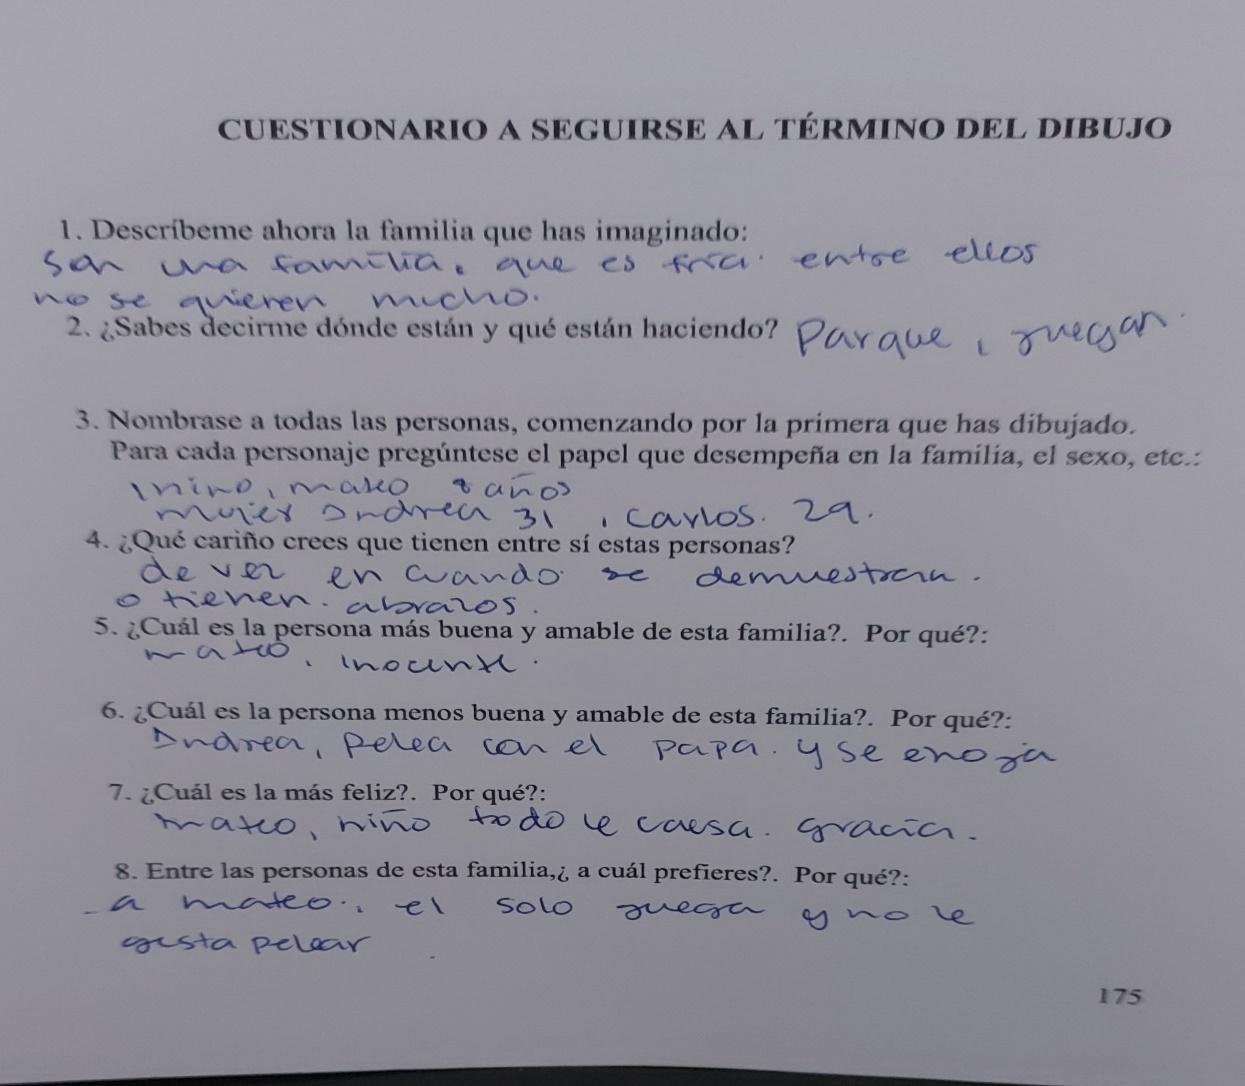 CUESTIONARIO A SEGUIRSE AL TÉRMINO DEL DIBUJO
1. Descríbeme ahora la familia que has imaginado:
son una familia, que es fría. entre ellos
no se quieren mucho.
2. ¿Sabes decirme dónde están y qué están haciendo? Parque, juegan.
3. Nombrase a todas las personas, comenzando por la primera que has dibujado.
Para cada personaje pregúntese el papel que desempeña en la familia, el sexo, etc.:
1 niño, mateo 8 años
mujer Andrea 31, Carlos. 29.
4. ¿Qué cariño crees que tienen entre sí estas personas?
de vez en cuando se demuestran.
o tienen. abrazos.
5. ¿Cuál es la persona más buena y amable de esta familia?. Por qué?:
mateo, inocente.
6. ¿Cuál es la persona menos buena y amable de esta familia?. Por qué?:
Andrea, pelea con el papa. y se enoja
7. ¿Cuál es la más feliz?. Por qué?:
mateo, niño todo le caesa. gracia.
8. Entre las personas de esta familia,¿ a cuál prefieres?. Por qué?:
a mateo., el solo juega y no le
gusta pelear
175